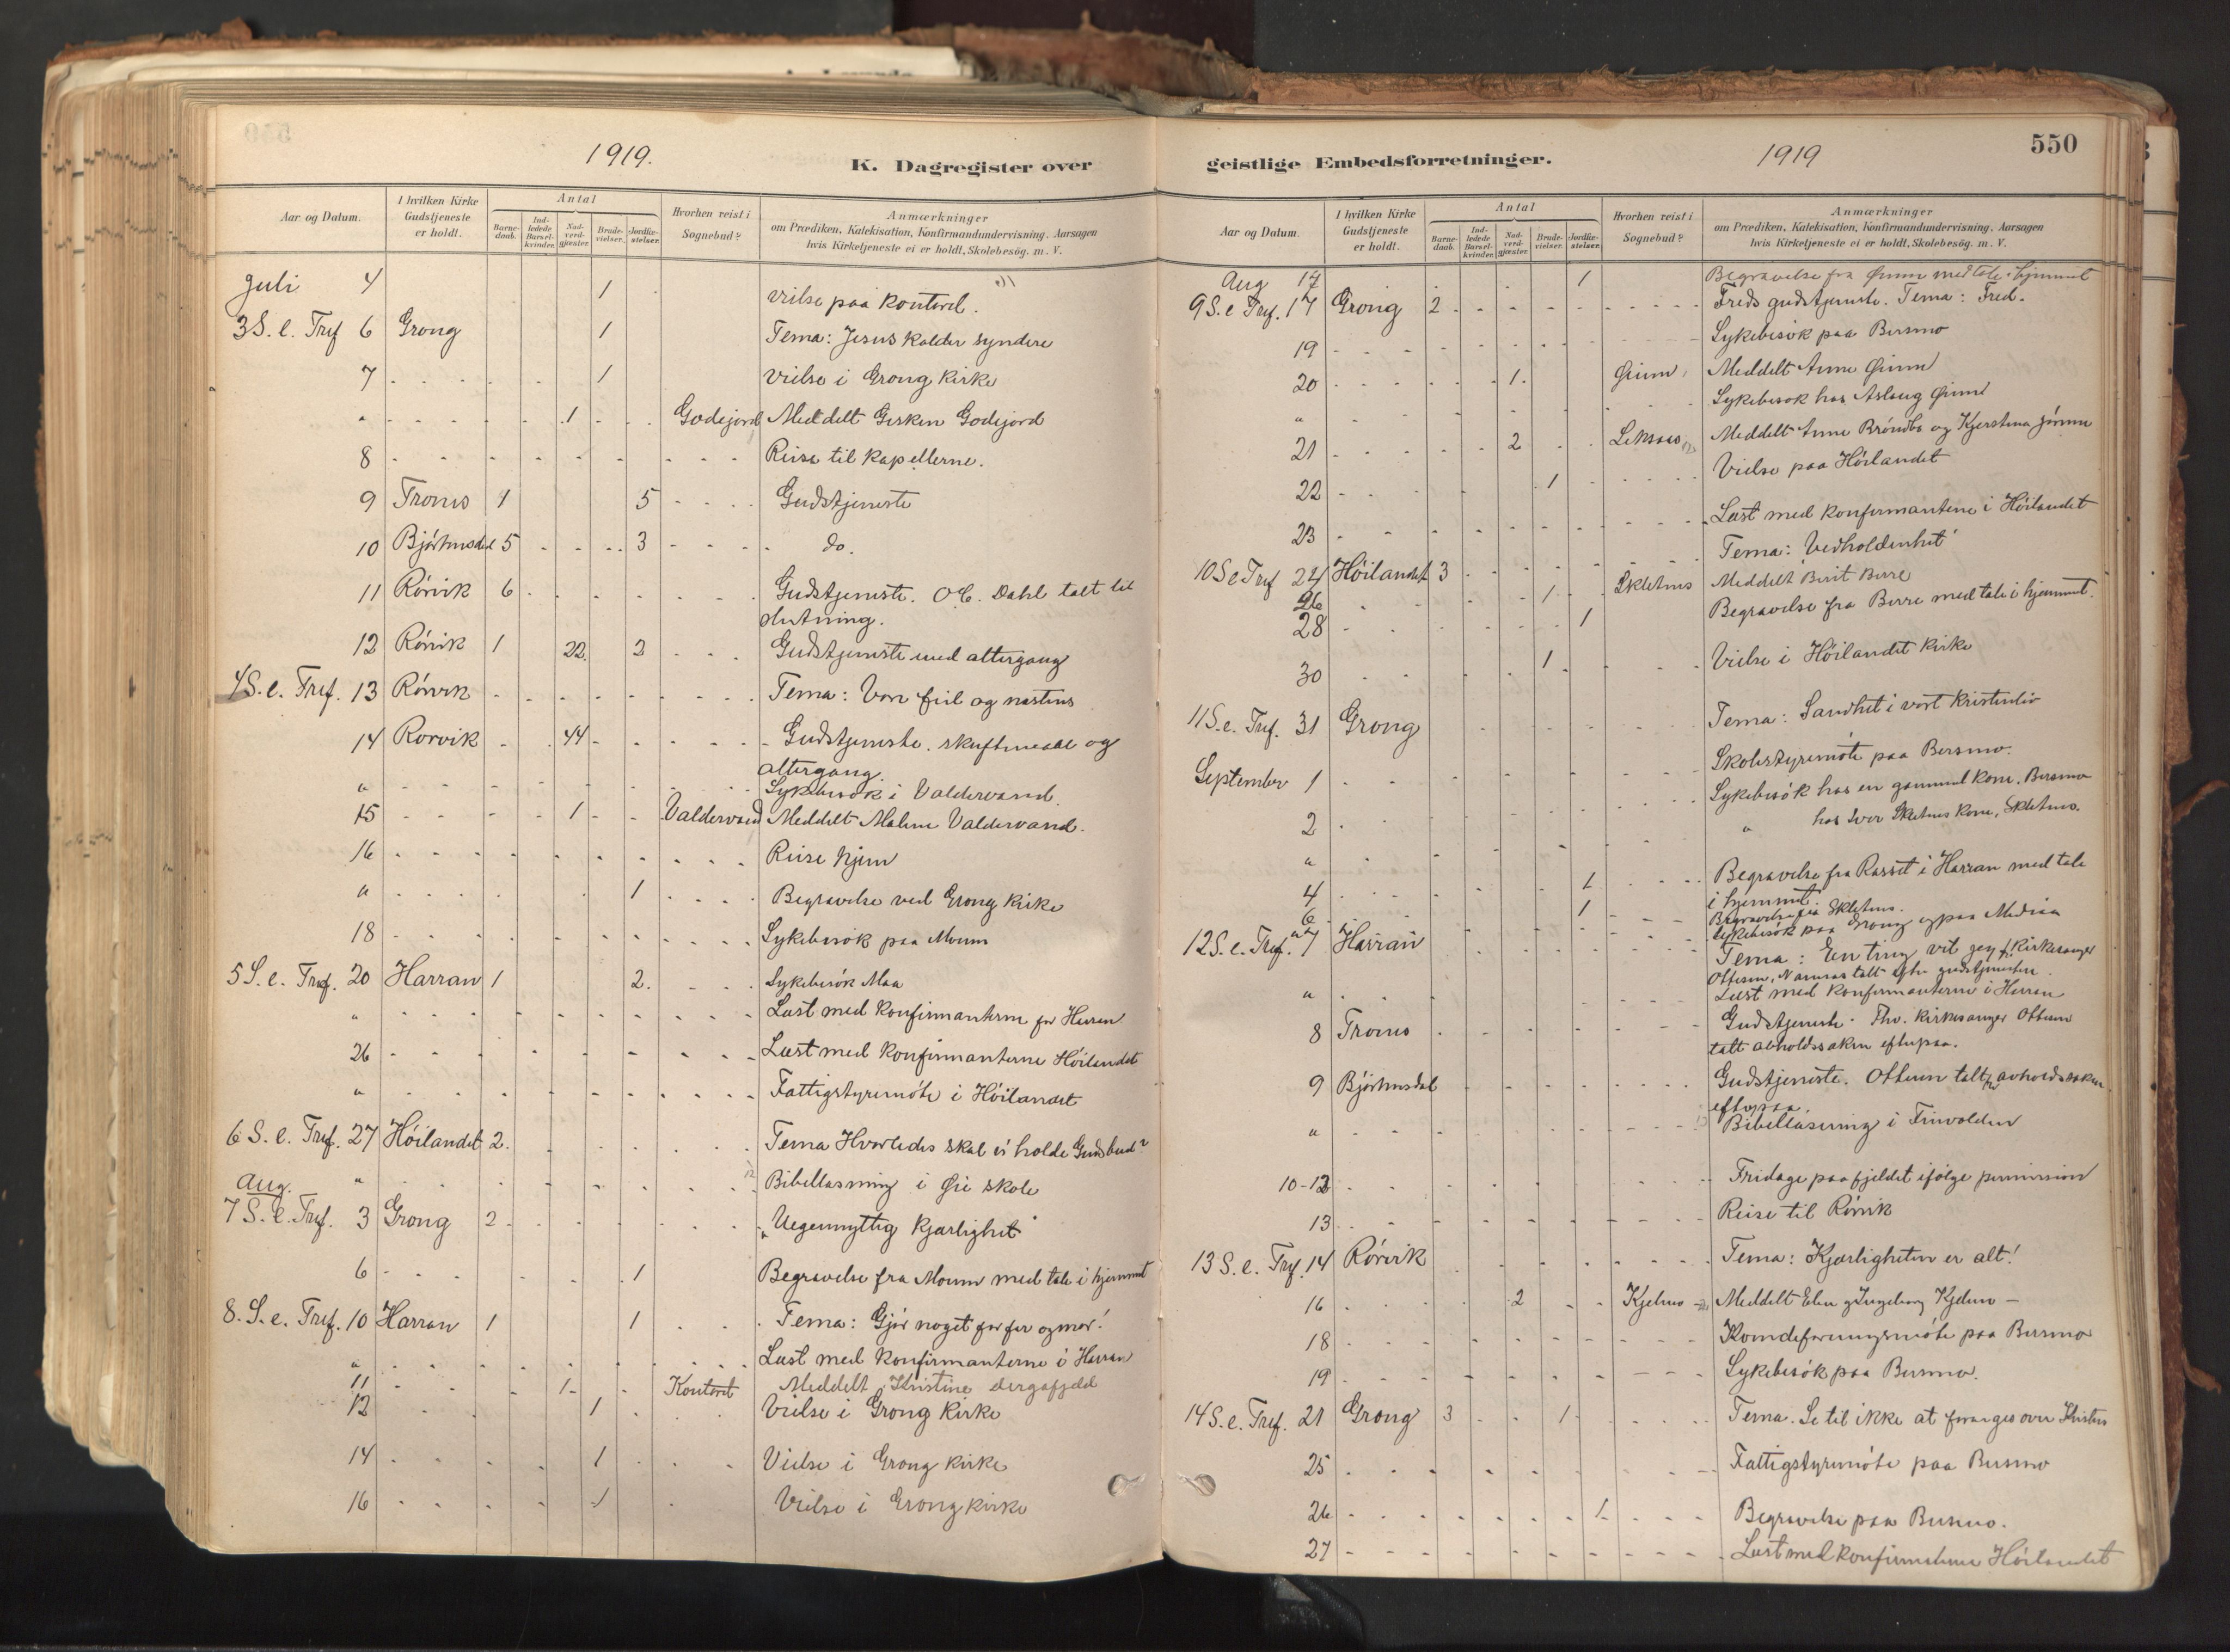 1919.
K. Dagregister over
Aar og Datum.
I hvilken Kirke Gudstjeneste er holdt.
Antal
Barnedaab.
Indledede Barselkvinder.
Nadverdgjæster.
Brudevielser.
Jordfæstelser.
Hvorhen reist i Sognebud?
Anmærkninger
om Prædiken, Katekisation, Konfirmandundervisning. Aarsagen
hvis Kirketjeneste ei er holdt, Skolebesøg. m. V.
Juli 4 1 Vielse paa Kontoret.
3 S. e. Tref 6 Grong 1 Tema: Jesus kalder syndere
7 1 Vielse i Grong Kirke
" 1 Godejord Meddelt Gisken Godejord
8 Reise til Kapellerne.
9 Trones 1 5 Gudstjeneste
10 Bjørhusdal 5 3 do.
11 Rörvik 6 Gudstjeneste. O.C. Dahl talt til
slutning.
12 Rörvik 1 22. 2 Gudstjeneste med altergang
4 S. e. Tref. 13 Rörvik Tema: Vore feil og næstens
14 Rorvik 44 Gudstjeneste. skriftmaal og
altergang.
" Sykebesök i Valdervand.
15 1 Valdervand Meddelt Malene Valdervand.
16 Reise hjem
" 1 Begravelse ved Grong Kirke
18 Sykebesök paa Moum
5 S. e. Tref. 20 Harran 1 2. Sykebesök Moa
" Læst med Konfirmanterne for Harran
26 Læst med Konfirmanterne Höilandet
" Fattigstyremöte i Höilandet
6 S. e. Tref. 27 Höilandet 2. Tema Hvorledes skal vi holde Guds bud?
Aug. " Bibellæsning i Øie skole
7 S. e. Tref. 3 Grong 2 "Uegennyttig Kjærlighet"
6 1 Begravelse fra Moum med tale i hjemmet
8. S. e. Tref. 10 Harran 1 1 Tema: Gjör noget for far og mor!
" Læst med Konfirmanterne i Harran
11 1 Kontoret Meddelt Kristine
12 1 Vielse i Grong Kirke
14 1 Vielse i Grong Kirke
16 1 Vielse i Grong Kirke
geistlige Embedsforretninger.
1919
550
Aar og Datum.
I hvilken Kirke Gudstjeneste er holdt.
Antal
Barnedaab.
Indledede Barselkvinder.
Nadverdgjæster.
Brudevielser.
Jordfæstelser.
Hvorhen reist i Sognebud?
Anmærkninger
om Prædiken, Katekisation, Konfirmandundervisning. Aarsagen
hvis Kirketjeneste ei er holdt, Skolebesøg. m. V.
Aug 17 1 Begravelse fra Ørum med tale i hjemmet
9 S. e Tref. 17 Grong 2 Freds gudstjeneste. Tema: Fred.
19 Sykebesök paa Bersmo
20 1. Meddelt Anne
" Sykebesok hos Aslaug
21 2 Leksaas Meddelt Anne Bröndbo og Kjerstina
22 1 Vielse paa Höilandet
23 Læst med Konfirmantene i Höilandet
10 S e Tref 24 Höilandet 3 Tema: Vedholdenhet
26 1 Skletnes Meddelt Berit
28 1 Begravelse fra med tale i hjemmet.
30 1 Vielse i Höilandet Kirke
11 S. e. Tref. 31 Grong Tema: Sandhet i vort Kristenliv
September 1 Skolestyremöte paa Bersmo.
2 Sykebesök hos en gammel kone. Bersmo
" " hos Skletnes kone, Skletnes.
4 1 Begravelse fra Rasset i Harran med tale
i hjemmet.
6 1 Begravelse fra Skletnes.
" Sykebesök paa Grong og paa Mediaa
12 S. e. Tref. 7 Harran Tema: En ting vet jeg. Kirkesanger
Ottesen, Namsos talt efter gudstjenesten.
" Læst med Konfirmanterne i Harran
8 Trones Gudstjeneste. Fhv. Kirkesanger Ottesen
talt avholdssaken efterpaa.
9 Bjørhusdal Gudstjeneste. Ottesen talt avholdssaken
efterpaa.
" Bibellæsning i Finvolden
10-12 Fridage paa fjeldet ifölge permission
13 Reise til Rörvik
13 S. e. Tref. 14 Rörvik Tema: Kjærligheten er alt!
16 2 Kjelmo Meddelt Elen og Ingeborg
18 paa Bersmo
19 Sykebesök paa Bersmo.
14 S. e. Tref. 21 Grong 3 1 Tema. Se til ikke at forarges over Kristus
25 Fattigstyremöte paa Bersmo
26 1 Begravelse paa Bersmo.
27 Læst med Konfirmantene Höilandet